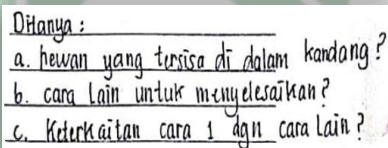 Ditanya :
a. hewan yang tersisa di dalam kandang ?
b. cara lain untuk menyelesaikan ?
c. Keterkaitan cara 1 dgn cara lain ?